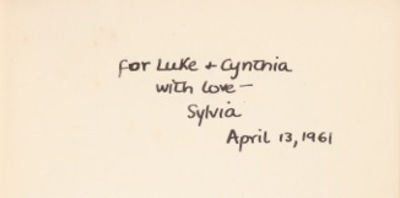 for Luke + Cynthia
with love -
Sylvia
April 13, 1961